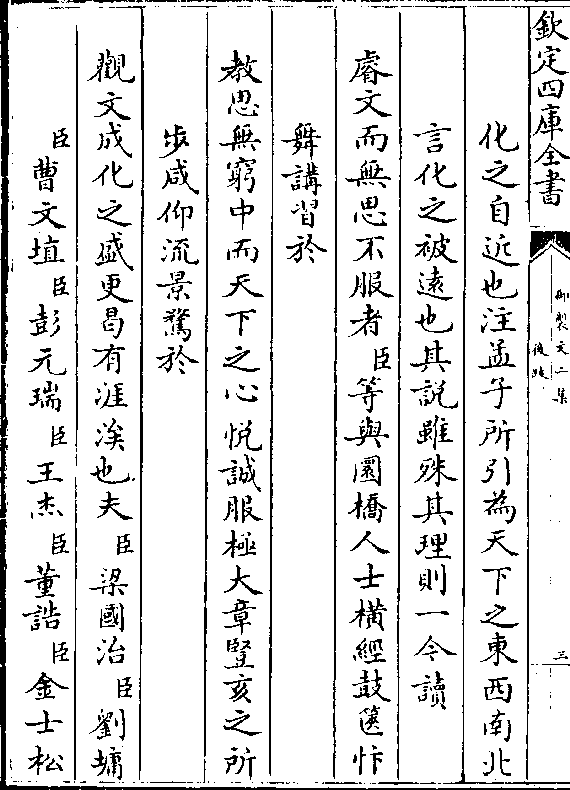 欽定四庫全書
御製文二集
後跋
三
化之自近也注孟子所引為天下之東西南北
言化之被遠也其說雖殊其理則一今讀
睿文而無思不服者臣等與圜橋人士橫經鼓篋忭
舞講習於
教思無窮中而天下之心悅誠服極大章豎亥之所
步咸仰流景驁於
觀文成化之盛更曷有涯涘也夫臣梁國治臣劉墉
臣曹文埴臣彭元瑞臣王杰臣董誥臣金士松